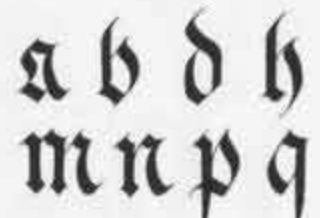 a b d h
m n p q